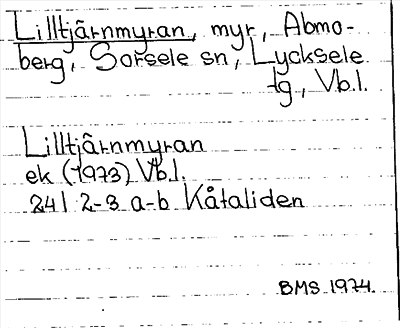 Lilltjärnmyran, myr, Abmo-
berg, Sorsele sn, Lycksele
tg, Vb.l.
Lilltjärnmyran
ek (1973) Vb.l.
24I 2-3 a-b Kåtaliden
BMS 1974.